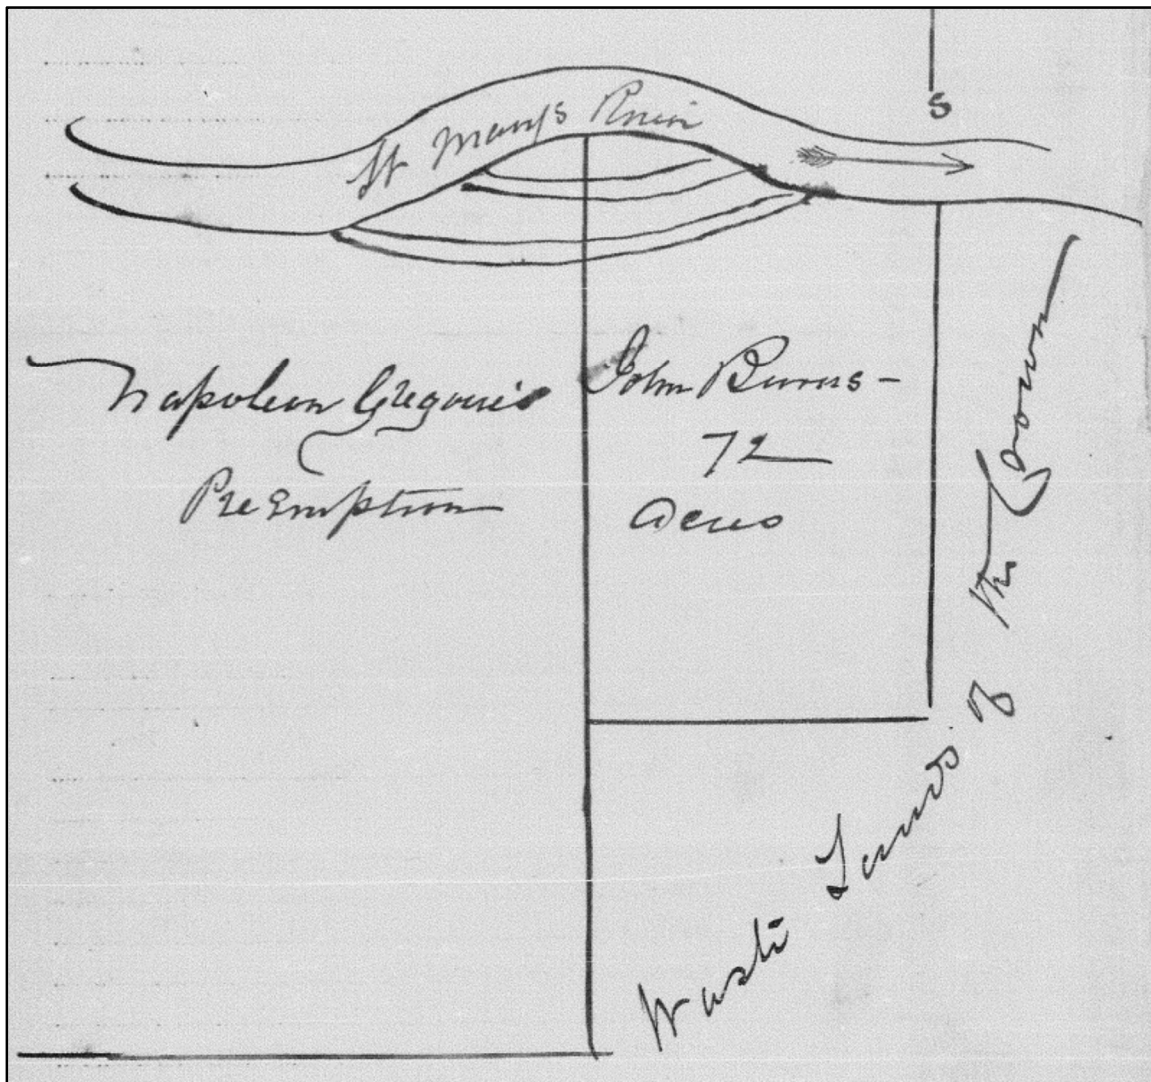 S
St Marys River
Napoleon Gregoire's
PreEmption
John Burns -
72
Acres
Waste Lands of the Crown